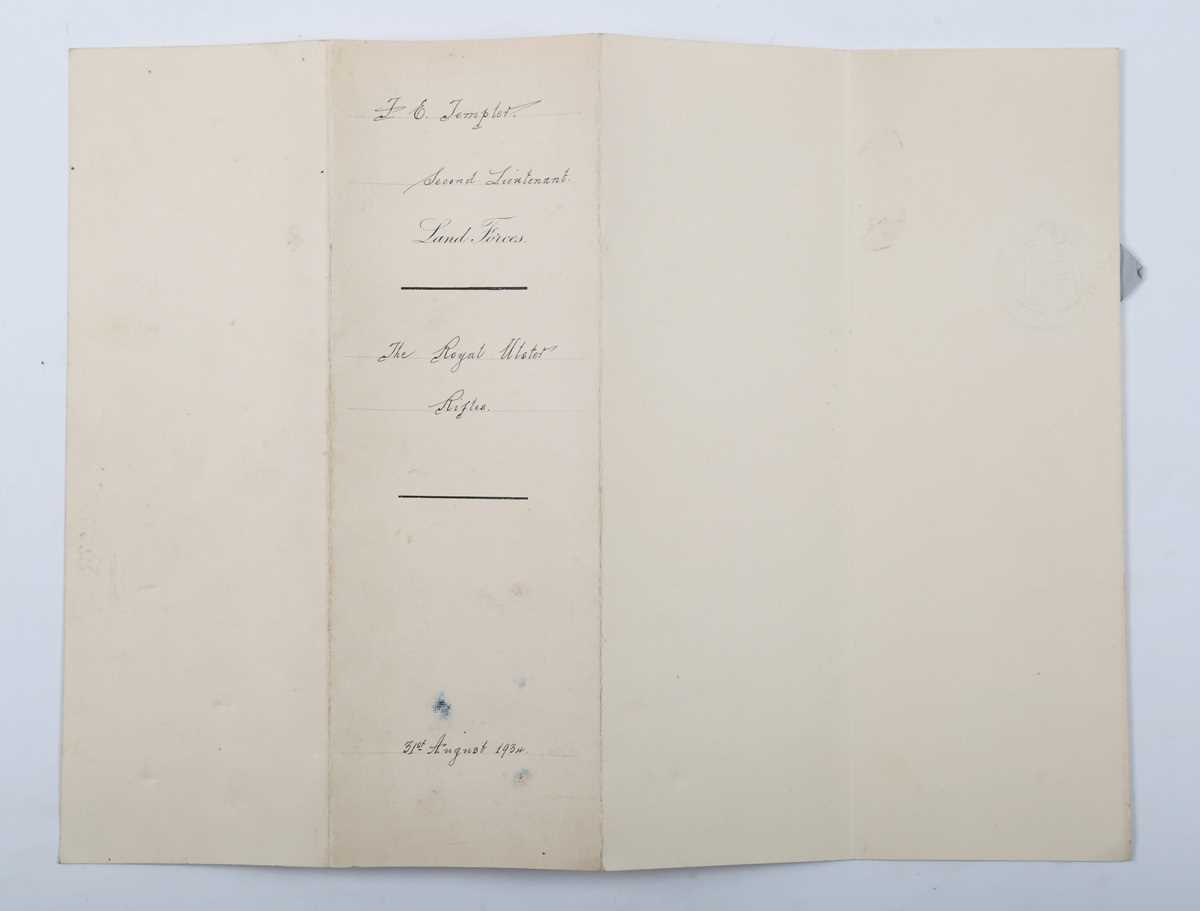 F E. Templer.
Second Lieutenant.
Land Forces.
The Royal Ulster
Rifles.
31st August 1934.